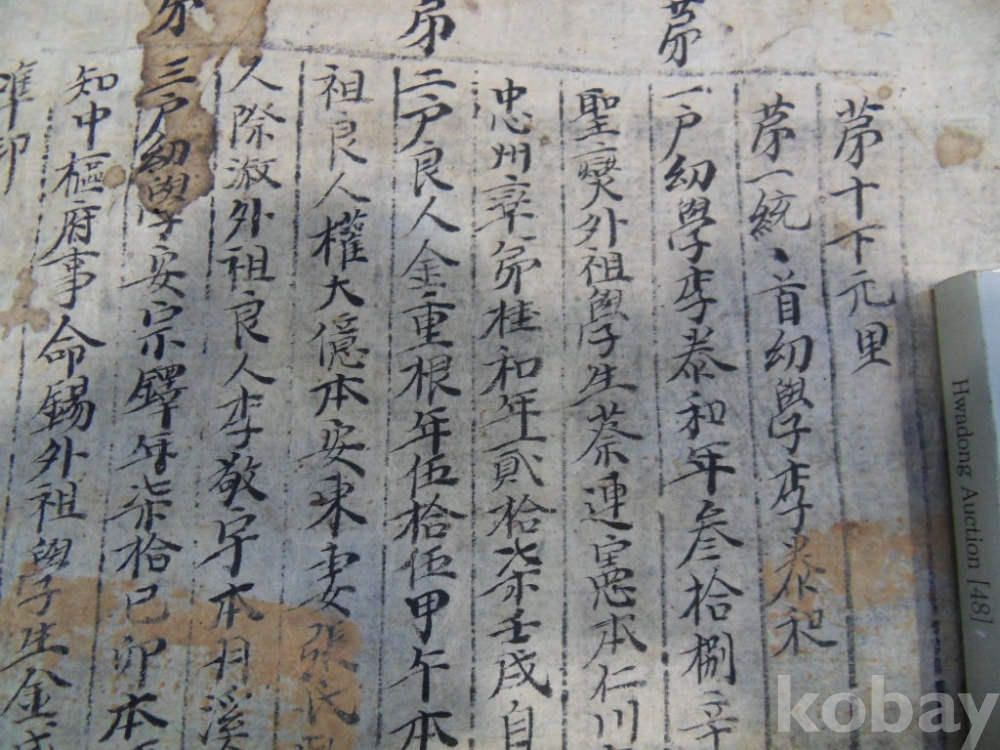 第 第 第
第十下元里
第一統、首幼學李泰和
一戶幼學李泰和年叁拾捌辛
聖燮外祖學生蔡連憲本仁川
忠州率弟桂和年貳拾柒壬戌自
二戶良人金重根年伍拾伍甲午本
祖良人權大億本安東妻張氏
人際淑外祖良人李敬宇本丹溪
三戶幼學安宗鐸年柒拾己卯本
知中樞府事命錫外祖學生金
準印
Hwadong Auction [48]
kobay